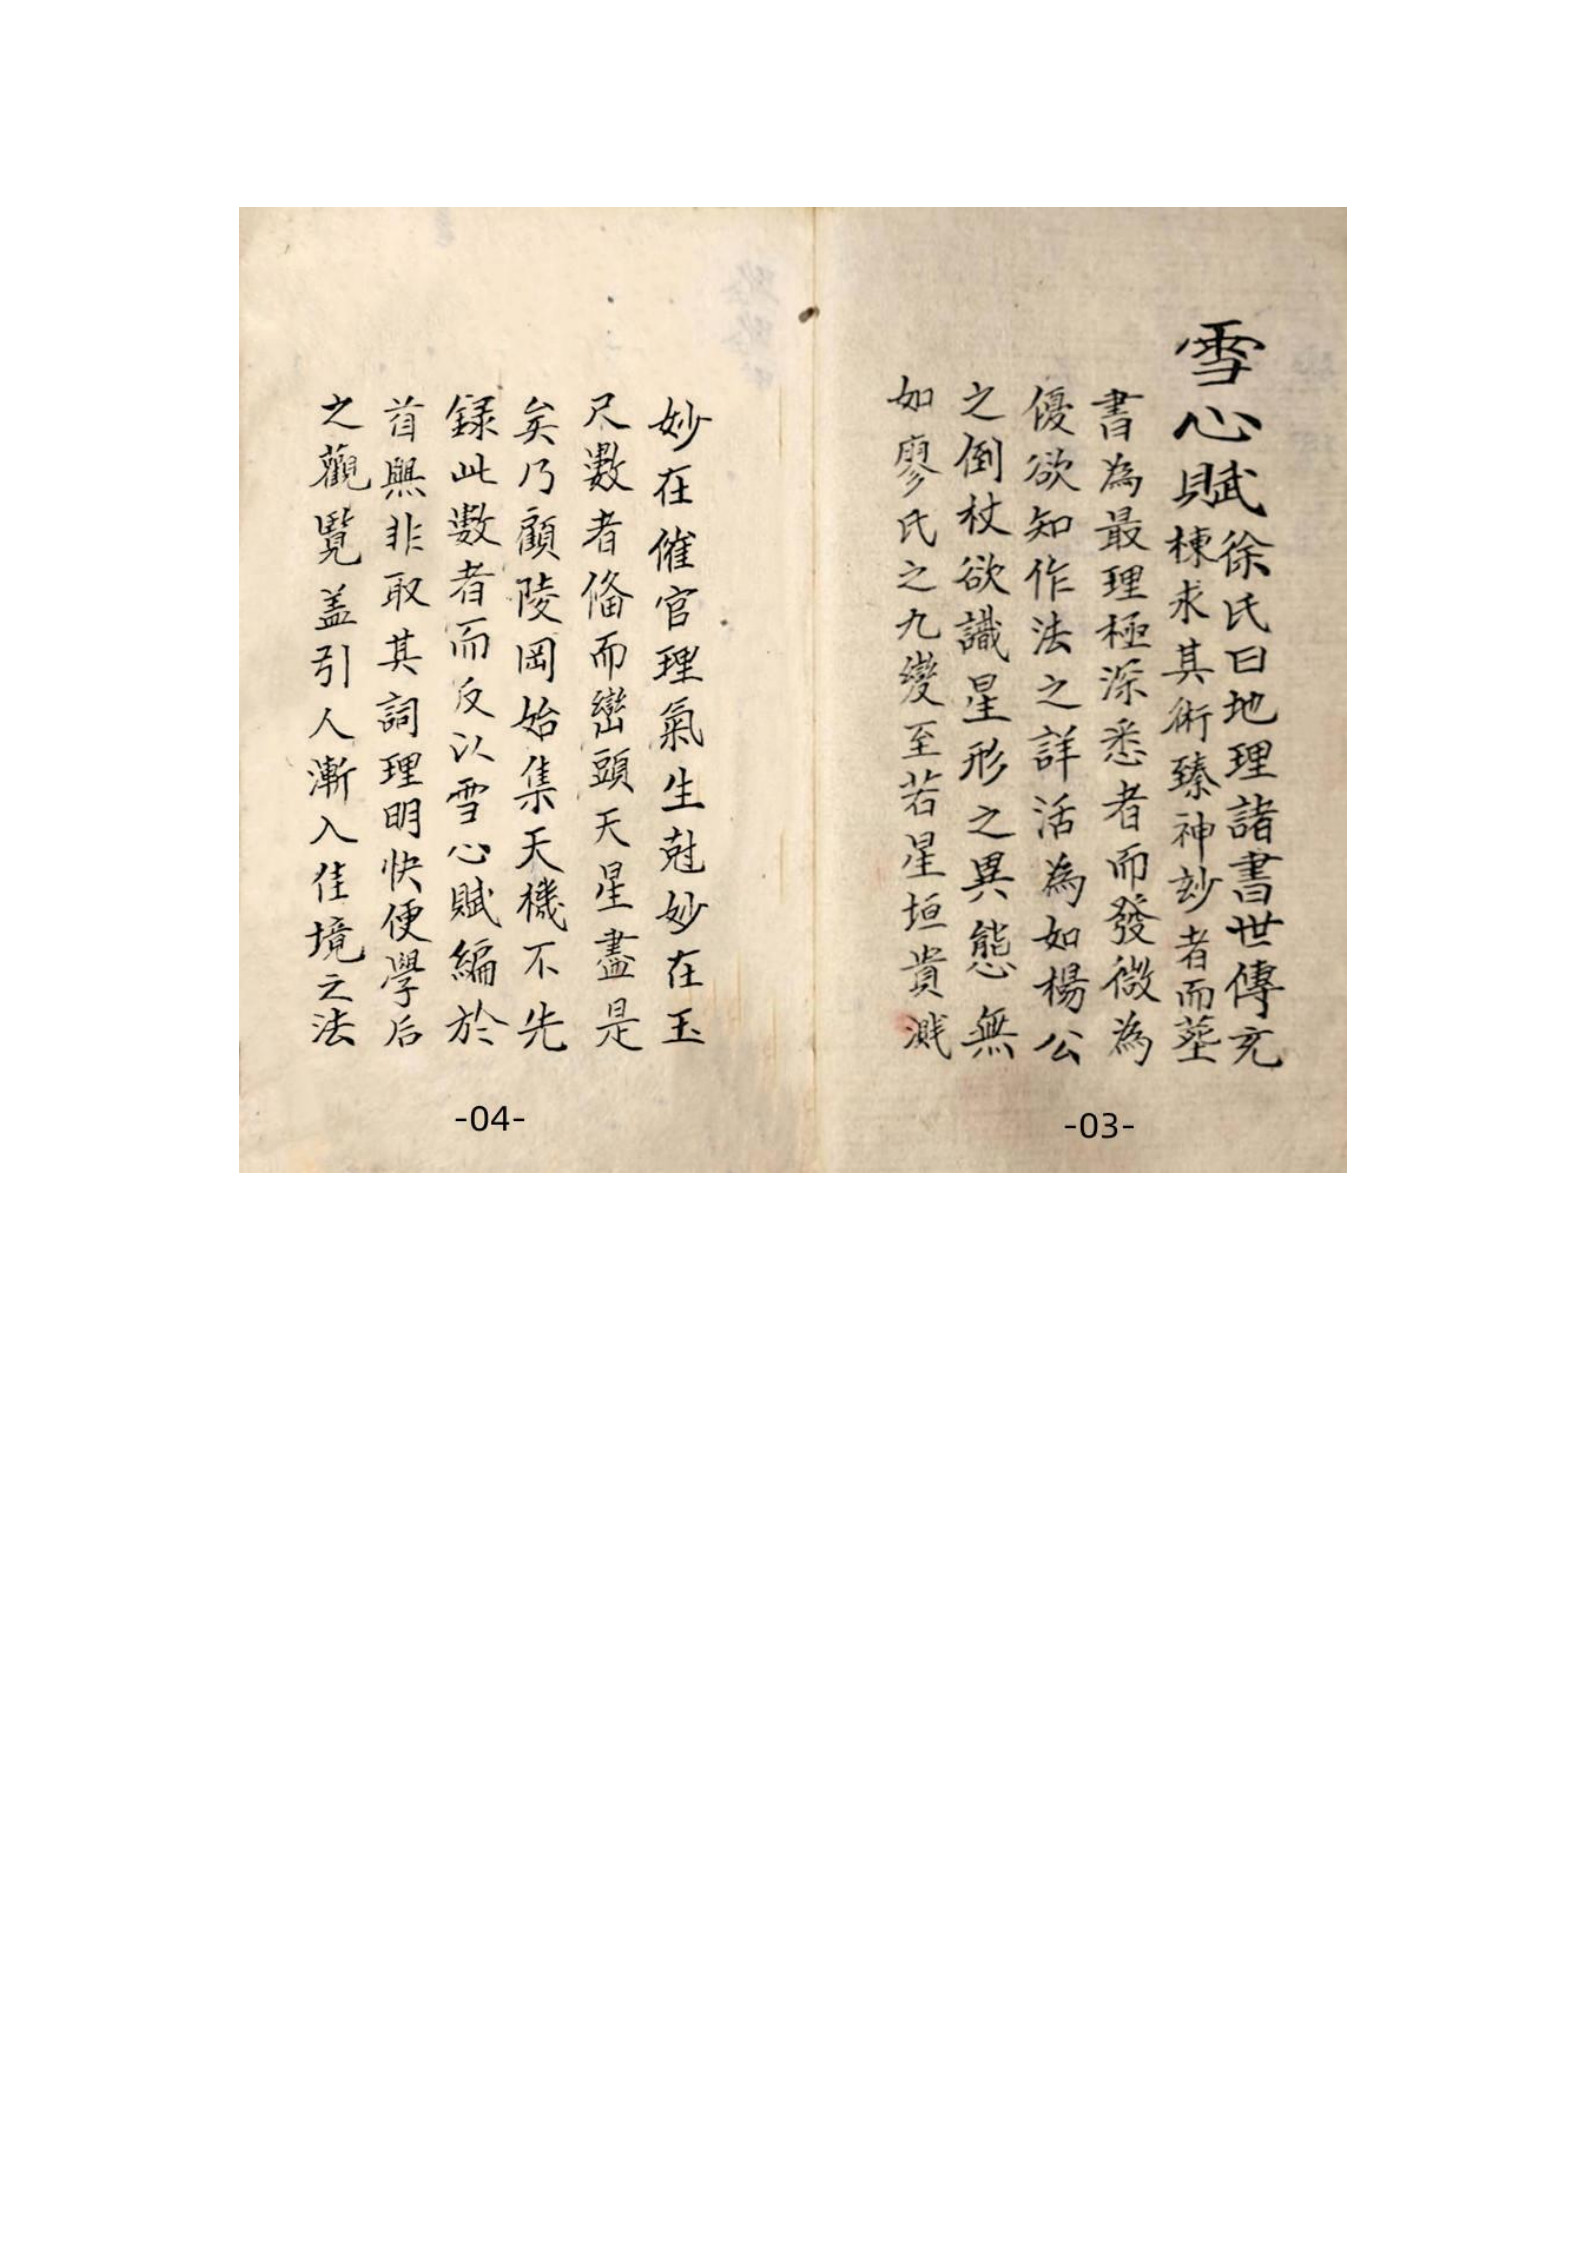 雪心賦
徐氏曰地理諸書世傳充
棟求其術臻神玅者而塟
書為最理極深悉者而發微為
優欲知作法之詳活為如楊公
之倒杖欲識星形之異態無
如廖氏之九變至若星垣貴濺
-03-
妙在催官理氣生尅妙在玉
尺數者俻而巒頭天星盡是
矣乃顧陵岡始集天機不先
録此數者而反以雪心賦編於
首與非取其詞理明快便學后
之觀覽盖引人漸入佳境之法
-04-